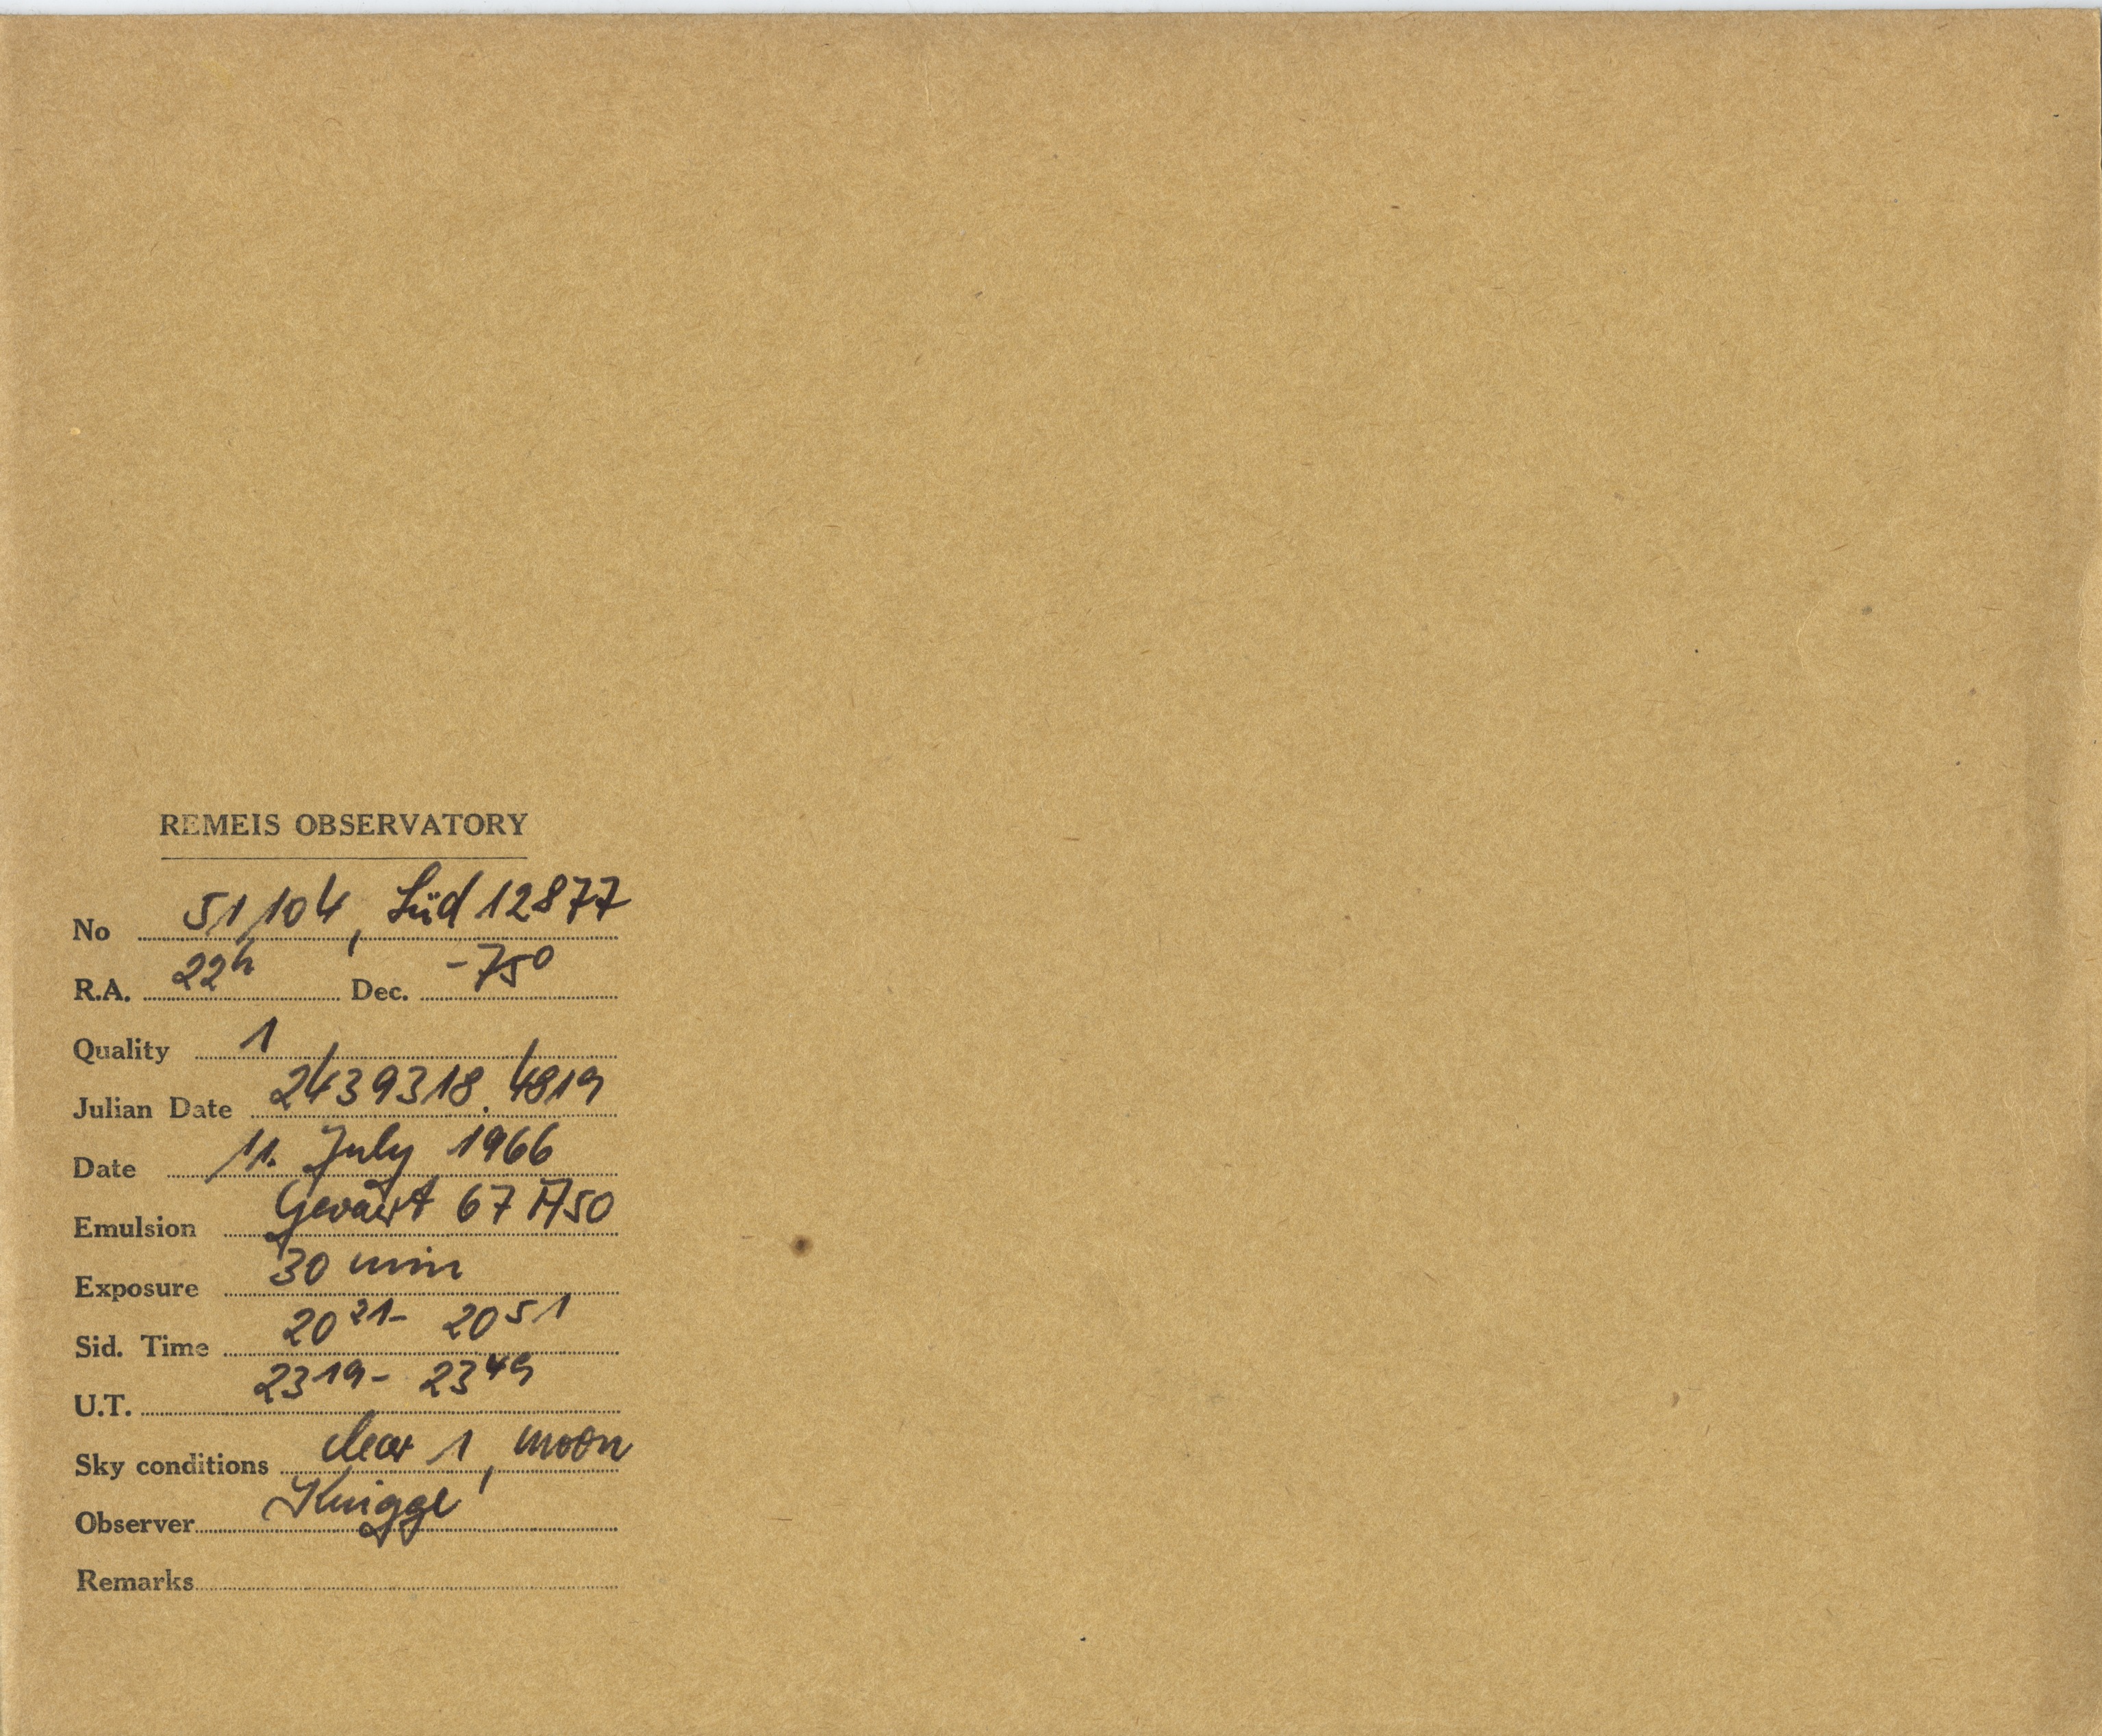 REMEIS OBSERVATORY
No 51/104, Süd 12877
R.A. 22h Dec. -75°
Quality 1
Julian Date 2439318.4819
Date 11. July 1966
Emulsion Gevaert 67 A50
Exposure 30 min
Sid. Time 20 21 - 20 51
U.T. 23 19 - 23 49
Sky conditions clear 1, moon
Observer Knigge
Remarks